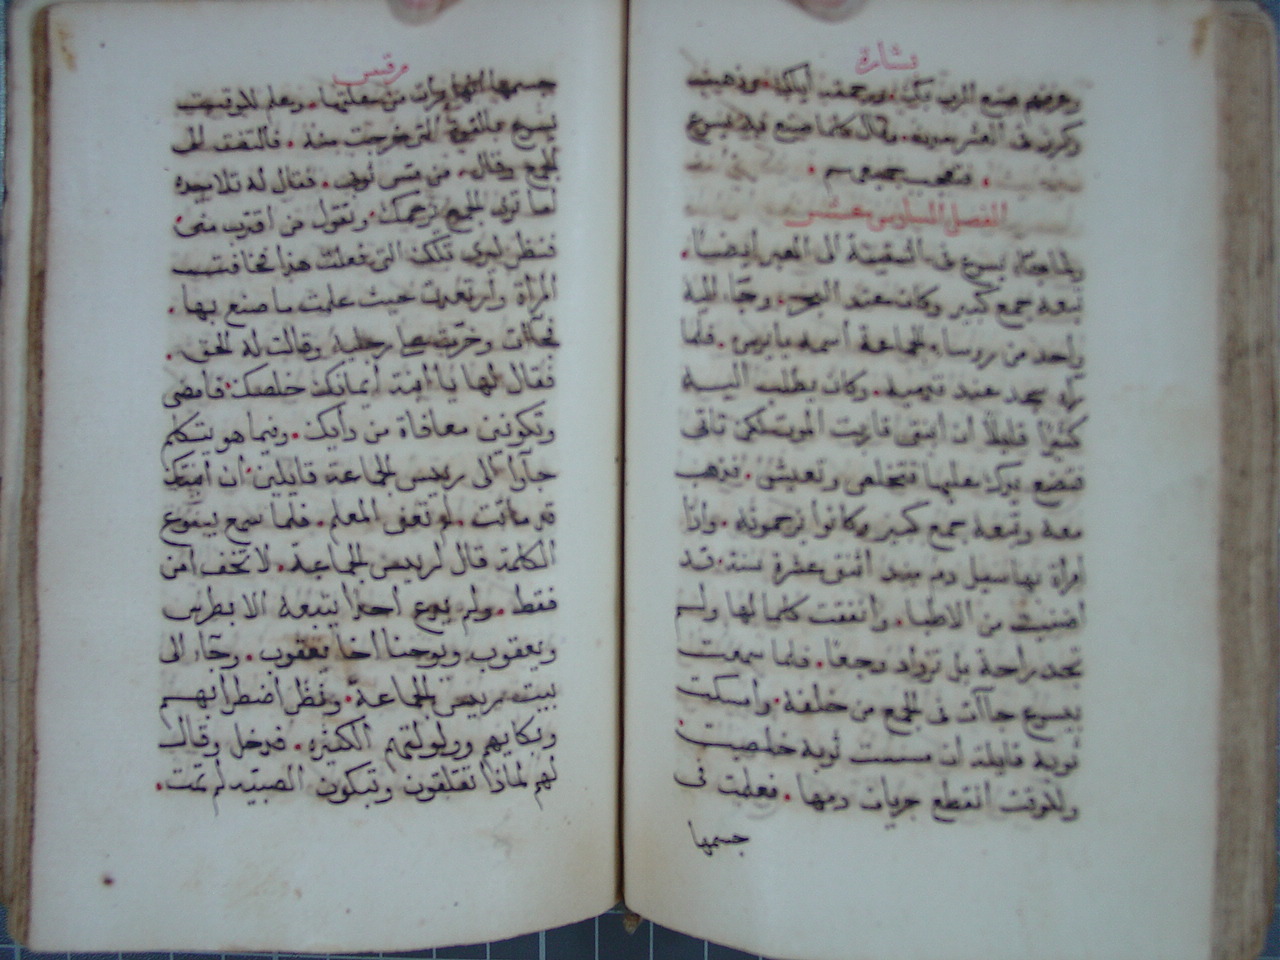 بشارة
وعرفهم صنع الرب بك. ورحمته اياك. وذهب
وكرز في العشر مدن. وقال كلما صنع فيه يسوع
. فتعجب جميعهم .
الفصل السادس عشر
ولما جاء يسوع في السفينة الى العبر ايضاً.
تبعه جمع كبير وكان عند البحر. وجاء اليه
واحد من روساء الجماعة أسمه يايرس. فلما
رآه سجد عند قدميه. وكان يطلب اليه
كثيرًا قايلاً ان ابنتي قاربت الموت لكن تاتي
فتضع يدك عليها فتخلص وتعيش. فذهب
معه وتبعه جمع كبير وكانوا يزحمونه. واذا
امرأة بها سيل دم منذ أثنتى عشرة سنة. قد
من الاطبا. وانفقت كلما لها ولم
تجد راحة بل تزداد وجعًا. فلما سمعت
بيسوع جاآت في الجمع من خلفه. وامسكت
ثوبه قايلة ان مسست ثوبه خلصت.
وللوقت انقطع جريان دمها. فعلمت في
جسمها
مرقس
جسمها انها برأت من علتها. وعلم للوقت
يسوع بالقوة التي خرجت منه. فالتفت الى
الجمع وقال. من مس ثوبي. فقال له تلاميذه
اما ترى الجمع يزحمك. وتقول من اقترب منى.
فنظر ليرى تلك التي فعلت هذا فخافت
المرأة وارتعدت حيث علمت ما صنع بها.
فجاآت وخرّت على رجليه وقالت له الحق.
فقال لها يا ابنة أيمانك خلصك. فامضى
وتكونين معافاة من دايك. وفيما هو يتكلم
جاآوا الى رييس الجماعة قايلين. أن ابنتك
قد ماتت. لم تعنى المعلم. فلما سمع يسوع
الكلمة قال لرييس الجماعة. لا تخف امن
فقط. ولم يدع احداً يتبعه الا بطرس
ويعقوب ويوحنا اخا يعقوب. وجاء الى
بيت رييس الجماعة. ونظر أضطرابهم
وبكايهم وولولتهم الكثيره. فدخل وقال
لهم لماذا تقلقون وتبكون الصبيه لم تمت.